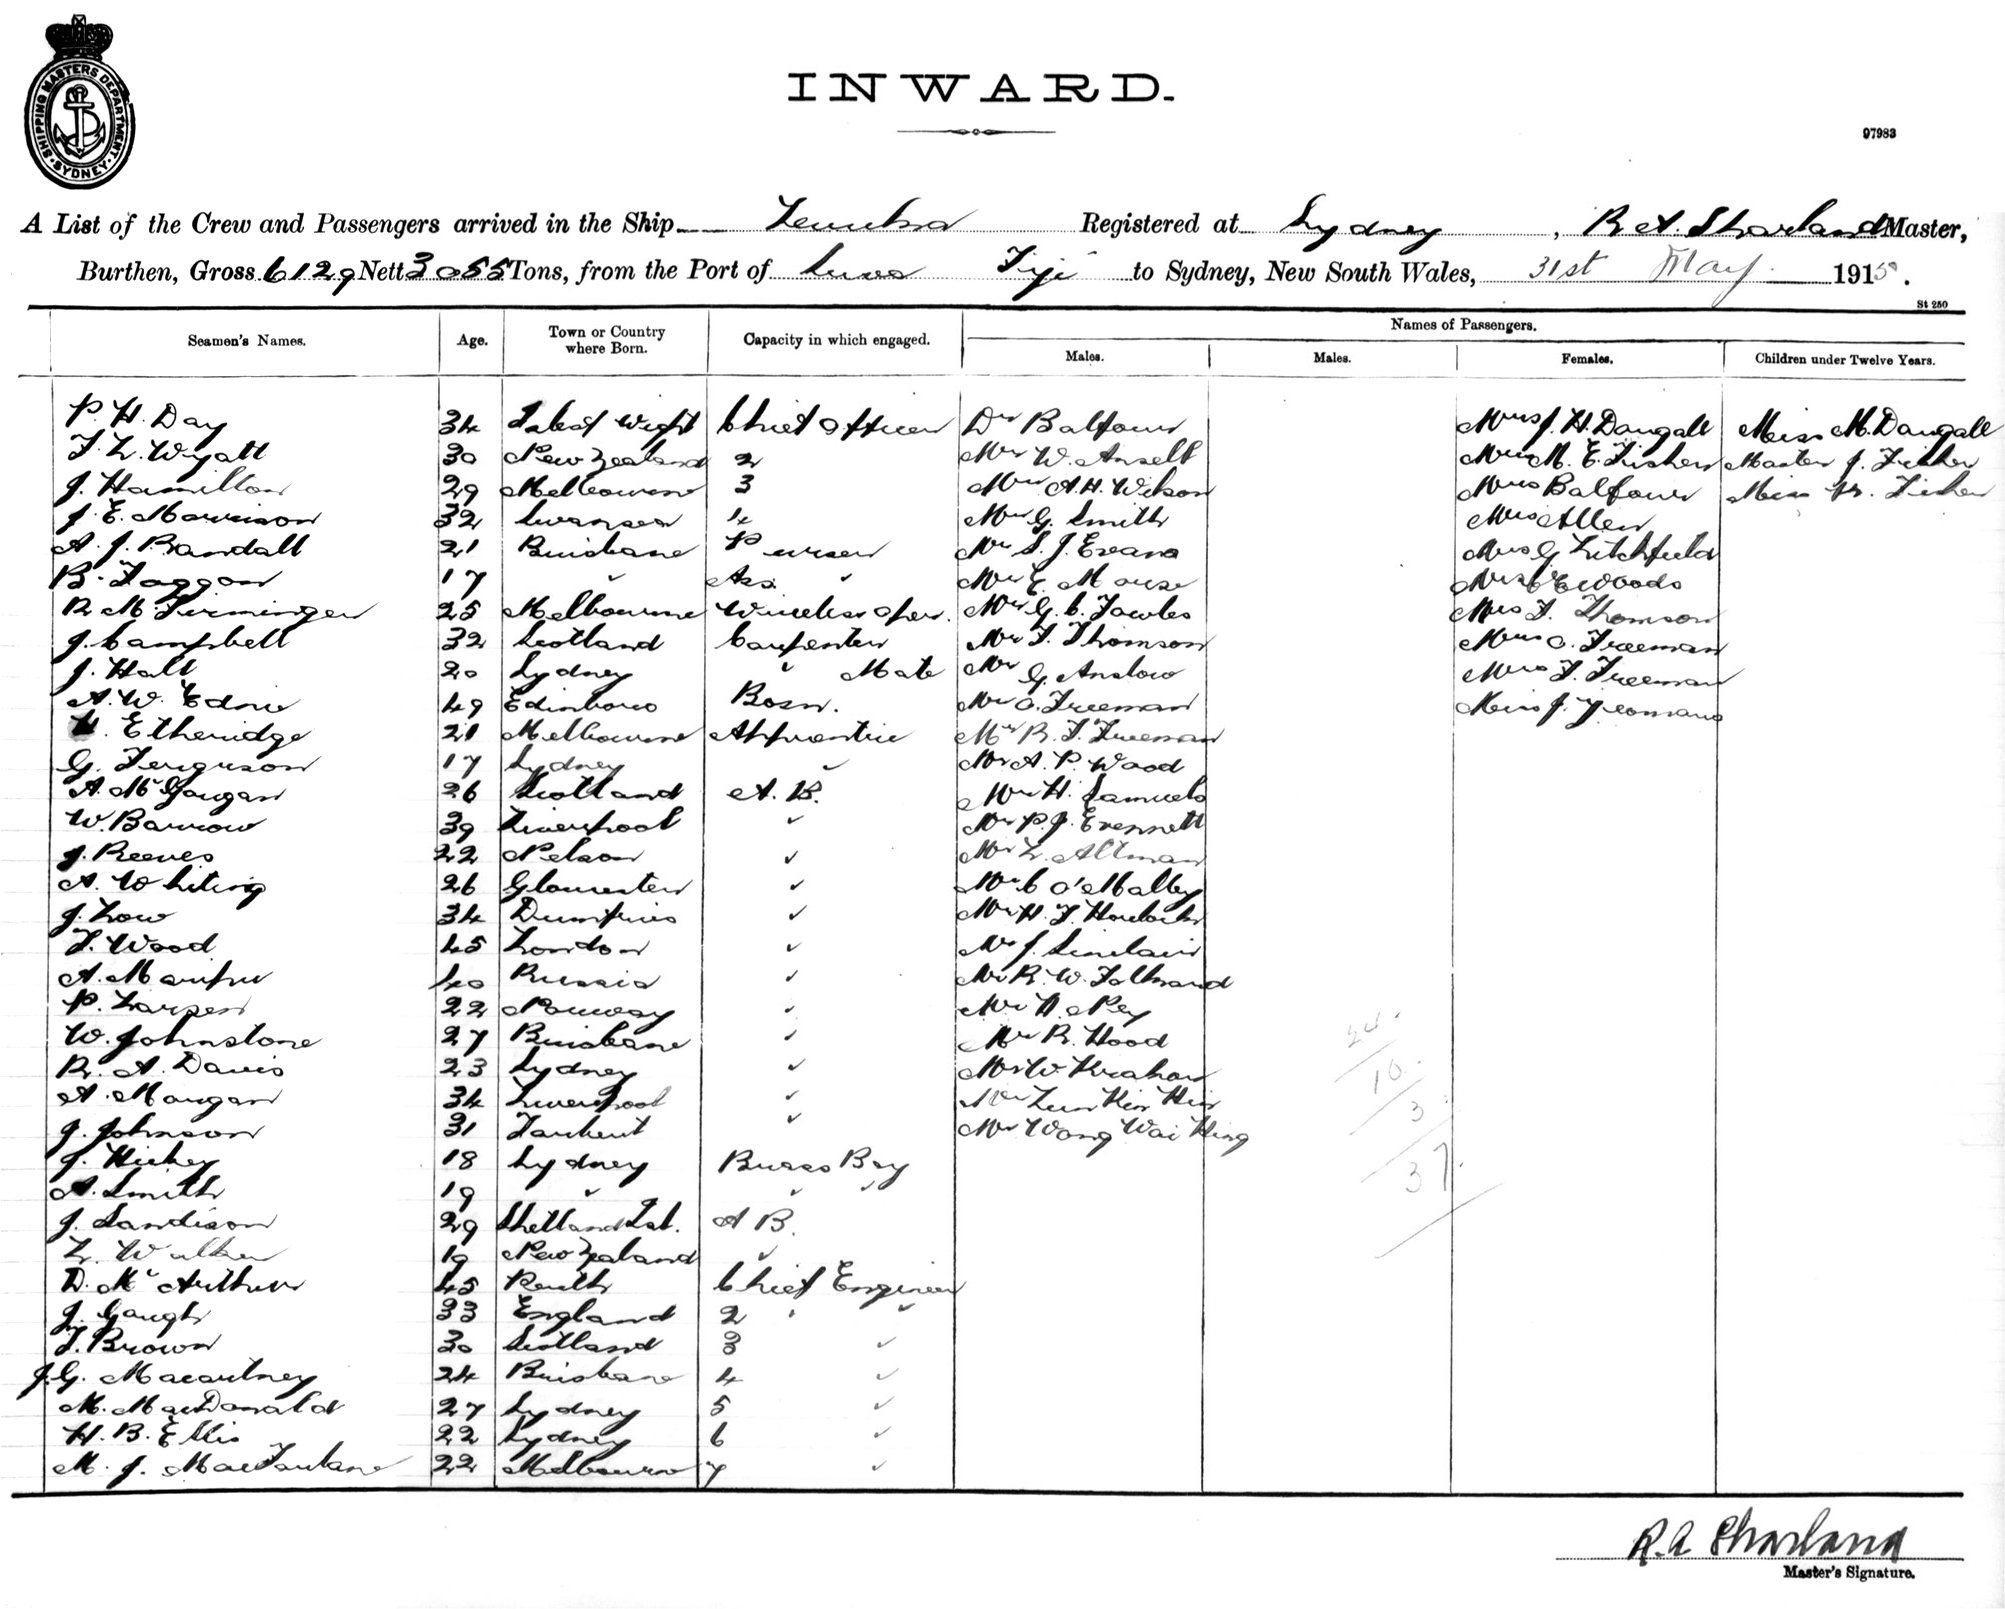 SHIPPING MASTERS DEPARTMENT
SYDNEY
INWARD.
97983
A List of the Crew and Passengers arrived in the Ship Levuka Registered at Sydney, R A. Sharland Master,
Burthen, Gross 6129 Nett 3055 Tons, from the Port of Suva Fiji to Sydney, New South Wales, 31st May 1915.
St 250
Seamen's Names. Age. Town or Country where Born. Capacity in which engaged. Names of Passengers.
Males. Males. Females. Children under Twelve Years.
P. H. Day 34 Isle of Wight Chief Officer Dr Balfour Mrs J. H. Dougall Miss M. Dougall
F. L. Wyatt 30 New Zealand 2 Mr W. Ansell Mrs M. E. Fisher Master J. Fisher
J. Hamilton 29 Melbourne 3 Mr A. H. Wilson Mrs Balfour Miss Fisher
J. E. Morrison 32 Swansea 4 Mr G. Smith Mrs Allen
A. J. Randall 21 Brisbane Purser Mr S. J. Evans Mrs G Litchfield
B. Faggon 17 " Ass. " Mr E. Morse Mrs E Woods
R. M. Firminger 25 Melbourne Wireless Oper. Mr G. C. Fowles Mrs F. Thomson
J. Campbell 32 Scotland Carpenter Mr F. Thomson Mrs O. Freeman
J. Hall 20 Sydney " Mate Mr G. Anslow Mrs F. Freeman
A. W. Edne 49 Edinboro Bosn. Mr O. Freeman Miss J. Yeomans
H. Etheridge 21 Melbourne Apprentice Mr R. F. Freeman
G. Ferguson 17 Sydney " Mr A. P. Wood
A. McGougan 26 Scotland A. B. Mr H. Samuels
W. Barrow 39 Liverpool " Mr P. J. Evennett
J. Reeves 22 Nelson " Mr L. Altman
A. Whiting 26 Gloucester " Mr C O'Malley
J. Low 34 Dumfries " Mr H. F.
F. Wood 45 London " Mr J. Sinclair
A. 40 Russia " Mr R. W. Tallmand
P. Larsen 22 Norway " Mr H. Ney
W. Johnstone 27 Brisbane " Mr R. Hood
R. A. Davis 23 Sydney " Mr W Krahow
A. Morgan 34 Liverpool " Mr Lum Kim Him
J. Johnson 31 Tarbert " Mr Wong Wai Hing
J. Hickey 18 Sydney Brass Boy
A. Smith 19 " " "
J. Sandison 29 Shetland Isl. A B.
L. Walker 19 New Zealand "
D. McArthur 45 Perth Chief Engineer
J. Gough 33 England 2 "
F. Brown 30 Scotland 3 "
J. G. Macartney 24 Brisbane 4 "
M. MacDonald 27 Sydney 5 "
H. B. Ellis 22 Sydney 6 "
M. J. MacFarlane 22 Melbourne 7 "
24
10
3
37
R. A Sharland
Master's Signature.